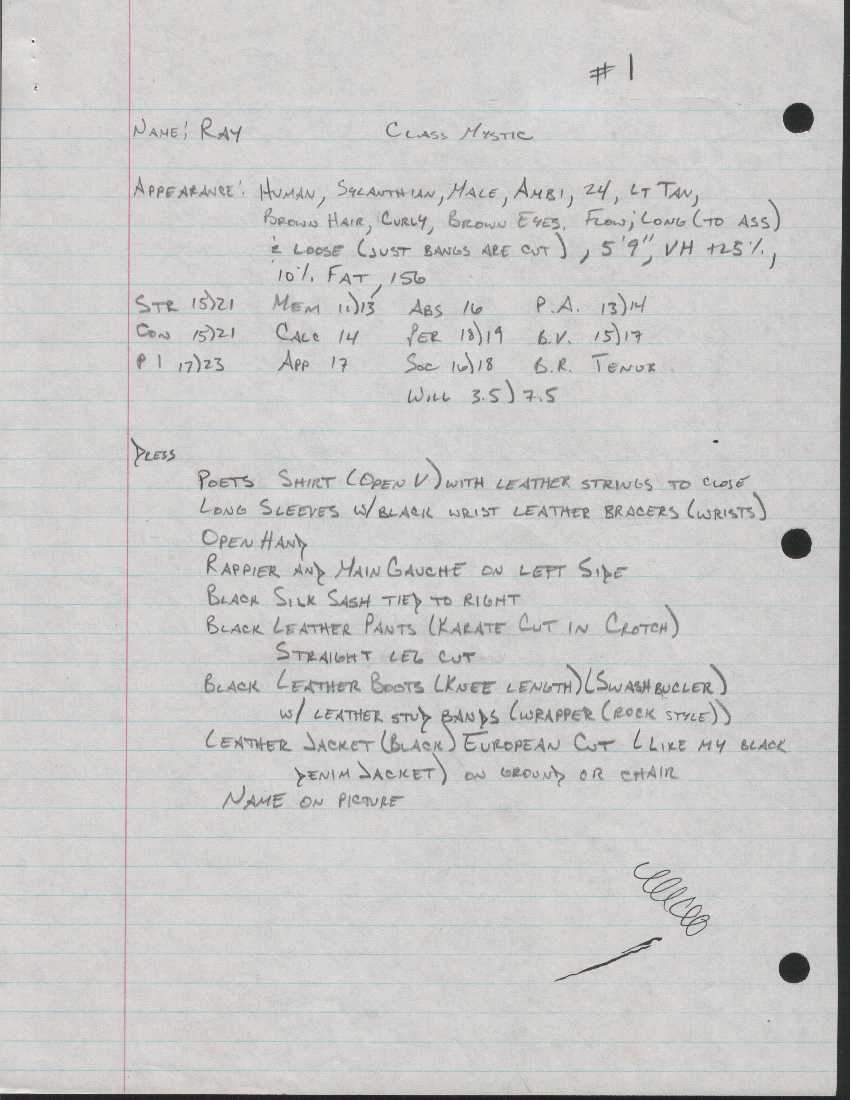 # 1
NAME: RAY CLASS MYSTIC
APPEARANCE: HUMAN, SYLANTHIAN, MALE, AMBI, 24, LT TAN,
BROWN HAIR, CURLY, BROWN EYES. FLOW; LONG (TO ASS)
& LOOSE (JUST BANGS ARE CUT), 5'9", VH +25%,
10% FAT, 156
STR 15)21 MEM 11)13 ABS 16 P.A. 13)14
CON 15)21 CALC 14 PER 18)19 B.V. 15)17
P I 17)23 APP 17 SOC 16)18 B.R. TENOR
WILL 3.5)7.5
DRESS
POETS SHIRT (OPEN V) WITH LEATHER STRINGS TO CLOSE
LONG SLEEVES W/BLACK WRIST LEATHER BRACERS (WRISTS)
OPEN HAND
RAPPIER AND MAIN GAUCHE ON LEFT SIDE
BLACK SILK SASH TIED TO RIGHT
BLACK LEATHER PANTS (KARATE CUT IN CROTCH)
STRAIGHT LEG CUT
BLACK LEATHER BOOTS (KNEE LENGTH) (SWASHBUCLER)
W/ LEATHER STUD BANDS (WRAPPER (ROCK STYLE))
LEATHER JACKET (BLACK) EUROPEAN CUT (LIKE MY BLACK
DENIM JACKET) ON GROUND OR CHAIR
NAME ON PICTURE